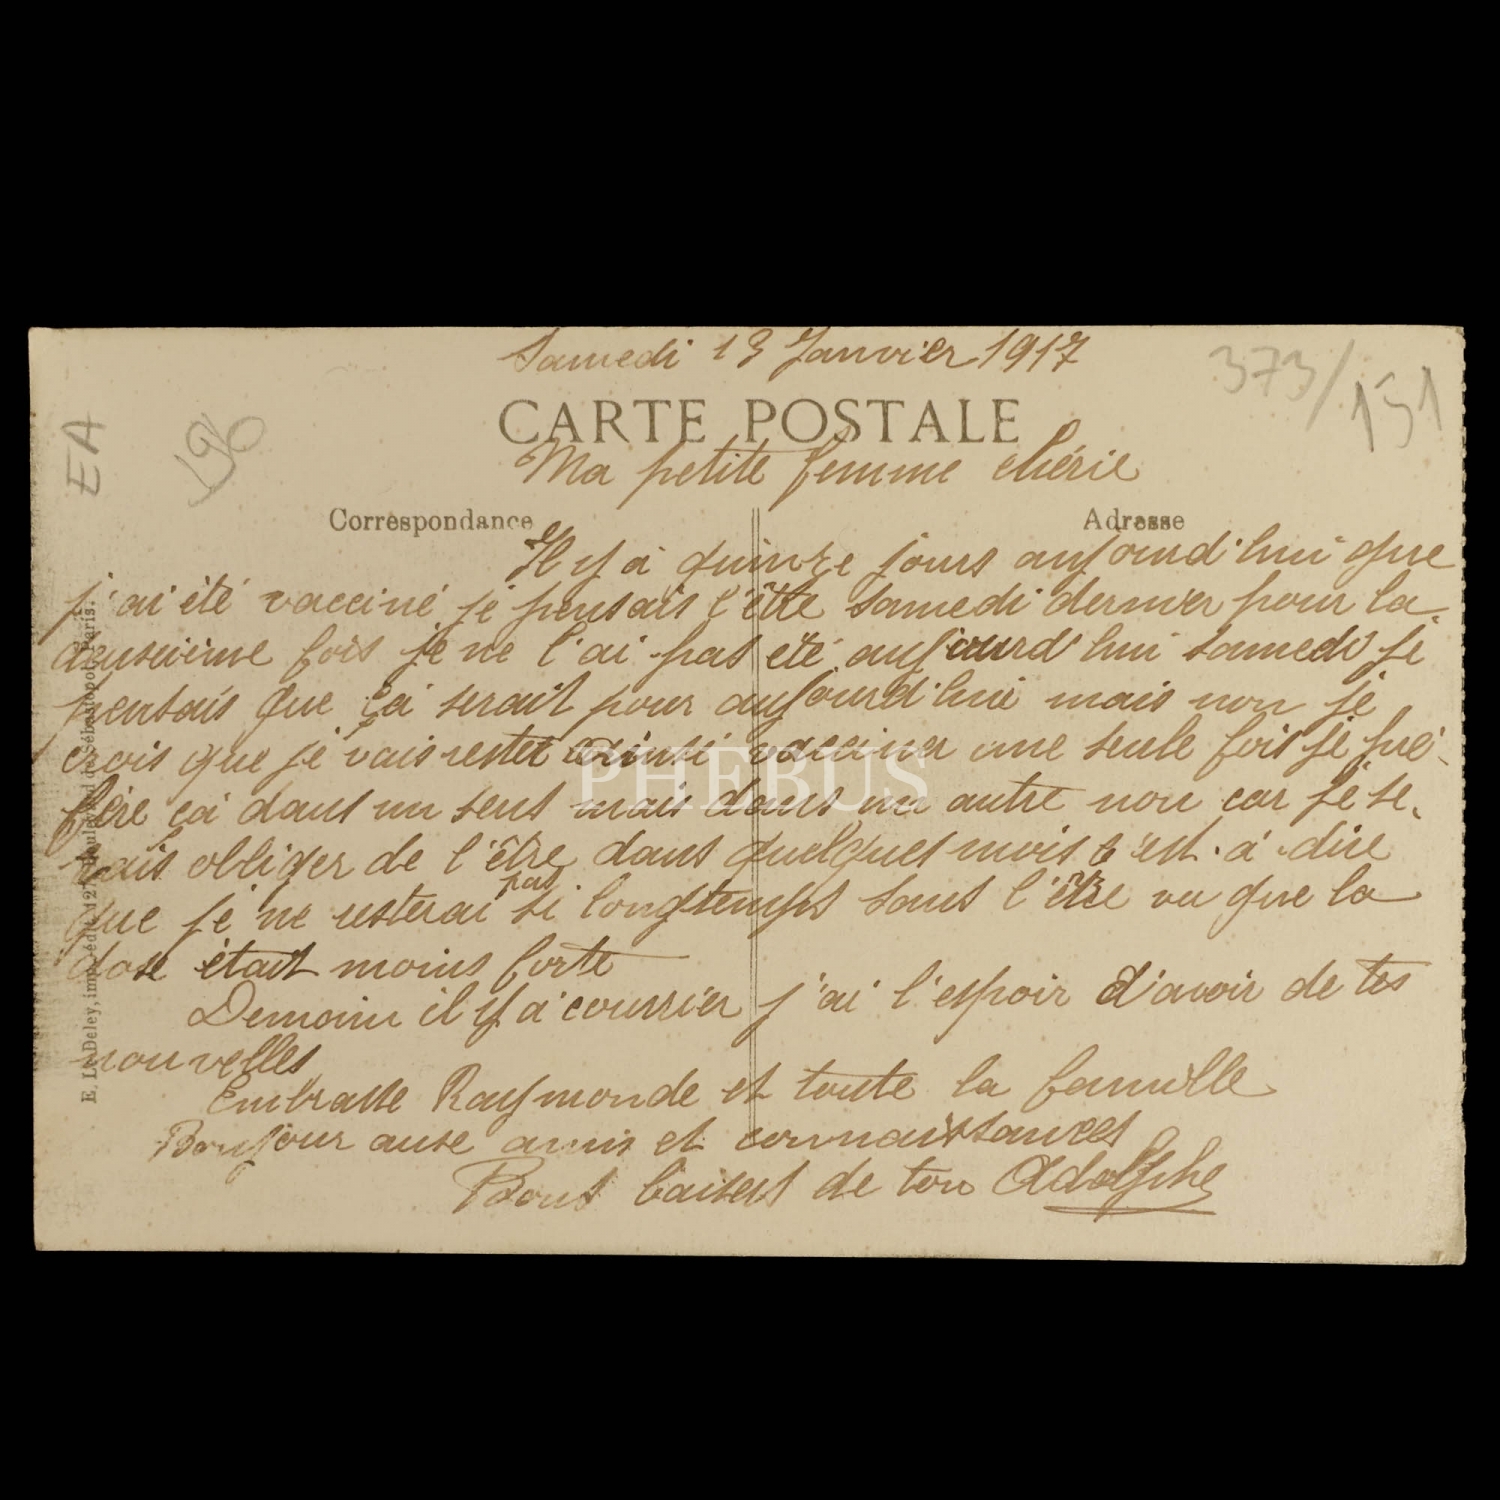 Samedi 13 Janvier 1917
373/151
EA
196
CARTE POSTALE
Ma petite femme chérie
Correspondance
Adresse
Il y a quinze jours aujourd'hui que
j'ai été vacciné je pensais l'être Samedi dernier pour la
deuseième fois je ne l'ai pas été aujourd'hui samedi je
pensais que ça serait pour aujourd'hui mais non je
crois que je vais rester ainsi vacciner une seule fois je pré-
fère ça dans un sens mais dans un autre non car je se-
rais obliger de l'être dans quelques mois c'est-à-dire
pas
que je ne resterai si longtemps sans l'être vu que la
dose était moins forte
Demain il y a courrier j'ai l'espoir d'avoir de tes
nouvelles
Embrasse Raymonde et toute la famille
Bonjour ause amis et connaissances
Bons baisers de ton Adolphe
E. Le Deley, imp.-édit., 127, Boulevard de Sébastopol, Paris.
PHEBUS